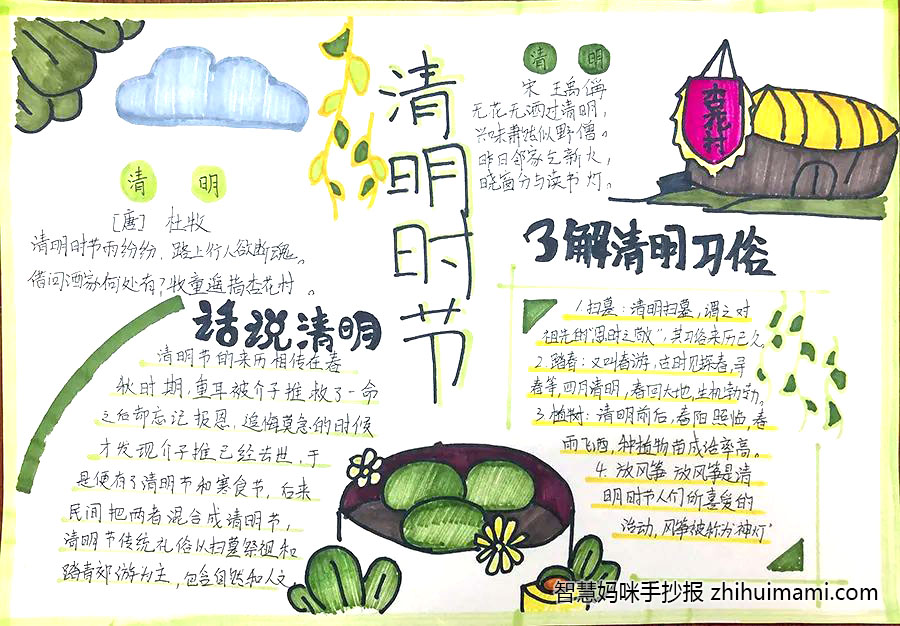 清明时节
清 明
[唐] 杜牧
清明时节雨纷纷，路上行人欲断魂。
借问酒家何处有？牧童遥指杏花村。
话说清明
清明节的来历相传在春
秋时期，重耳被介子推救了一命
之后却忘记报恩，追悔莫急的时候
才发现介子推已经去世，于
是便有了清明节和寒食节，后来
民间把两者混合成清明节，
清明节传统礼俗从扫墓祭祖和
踏青郊游为主，包含自然和人文
清 明
宋 王禹偁
无花无酒过清明，
兴味萧然似野僧。
昨日邻家乞新火，
晓窗分与读书灯。
杏花村
了解清明习俗
1.扫墓：清明扫墓，谓之对
祖先的“思时之敬”，其习俗来历已久。
2.踏青：又叫春游，古时见探春，寻
春等，四月清明，春回大地，生机勃勃。
3.植树：清明前后，春阳照临，春
雨飞洒，种植物苗成活率高。
4.放风筝 放风筝是清
明时节人们所喜爱的
活动，风筝被称为“神灯”
智慧妈咪手抄报 zhihuimami.com